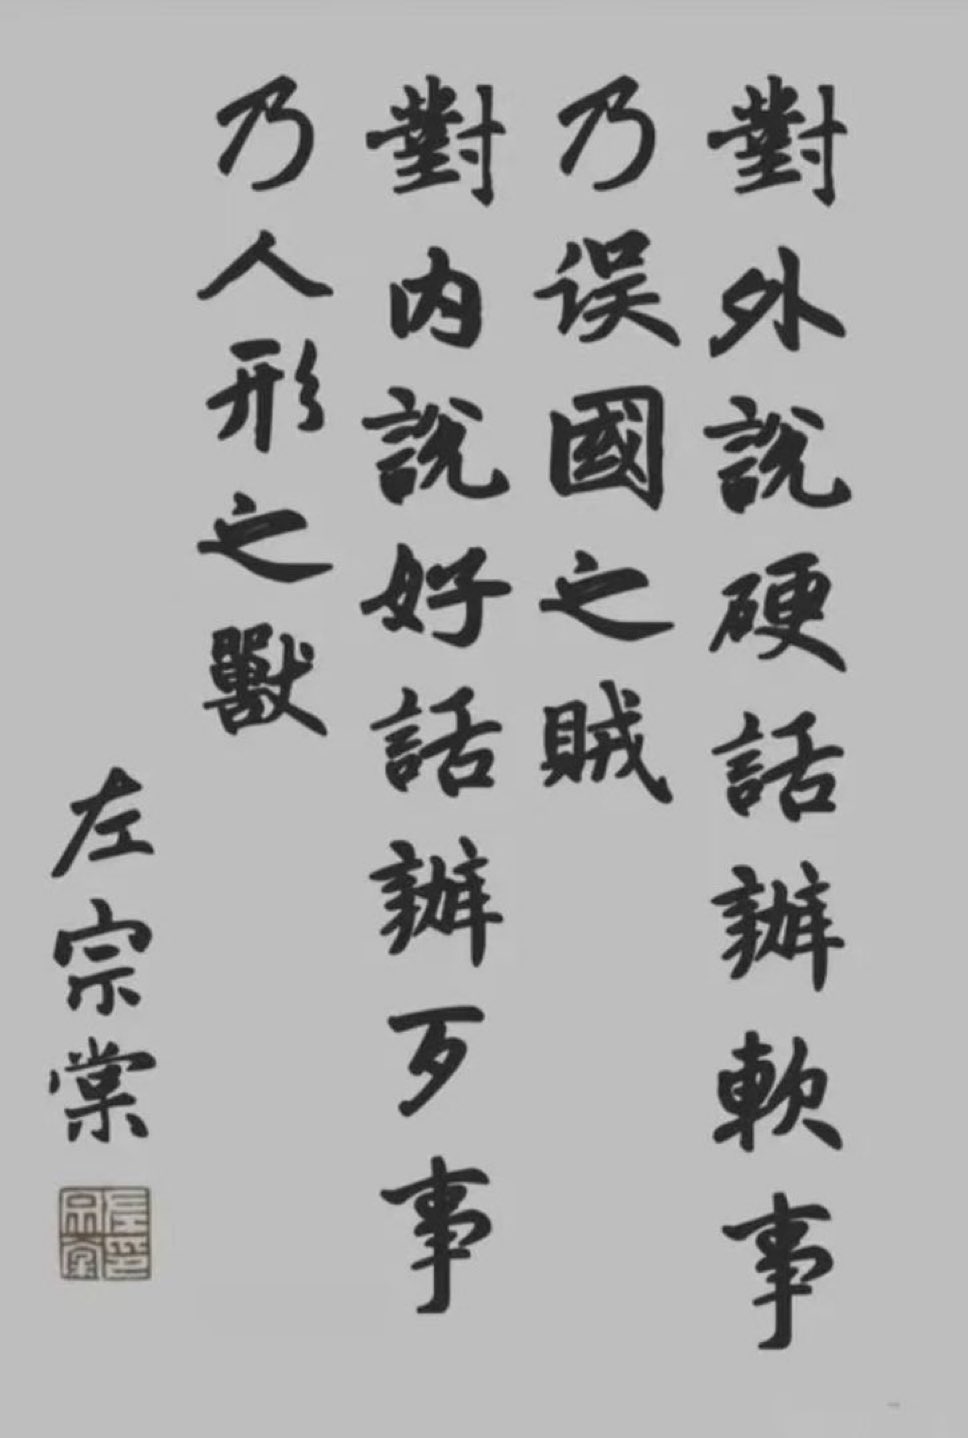 對外說硬話辦軟事
乃误國之賊
對内說好話辦歹事
乃人形之獸
左宗棠